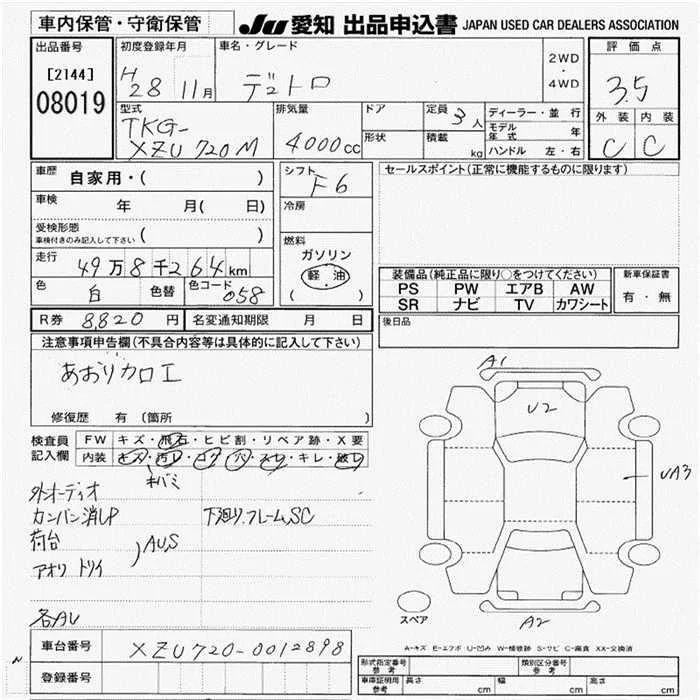 車内保管・守衛保管 JU 愛知 出品申込書 JAPAN USED CAR DEALERS ASSOCIATION
出品番号 初度登録年月 車名・グレード 2WD・4WD 評価点
[2144] H28 11月 デュトロ 3.5
08019
型式 排気量 ドア 定員 3人 ディーラー・並行 外装 内装
TKG- XZU720M 4000cc 形状 積載 kg モデル年式 年 C C
ハンドル 左・右
車歴 自家用・( ) シフト F6 セールスポイント(正常に機能するものに限ります)
車検 年 月( 日) 冷房
受検形態 ( )
車検付きのみ記入して下さい
燃料
走行 49万8千264km ガソリン
色 白 色替 色コード 058 軽油
( )
装備品(純正品に限り○をつけてください) 新車保証書
PS PW エアB AW 有・無
SR ナビ TV カワシート
R券 8,820円 名変通知期限 月 日 後日品
注意事項申告欄(不具合内容等は具体的に記入して下さい)
あおりカロエ
修復歴 有 (箇所 )
検査員記入欄 FW キズ・飛石・ヒビ割・リペア跡・X要
内装 キズ・汚レ・コゲ・穴・スレ・キレ・破レ
キバミ
外オーディオ
カンバン消しP 下廻り.フレームSC
荷台
アオリ トリイ )AUS
各AU
A1
U2
UA3
A2
スペア
A-キズ E-エクボ U-凹み W-補修跡 S-サビ C-腐食 XX-交換済
車台番号 XZU720-0012898
登録番号
形式指定番号 参考 類別区分番号 参考
車庫証明用 参考 長さ cm 幅 cm 高さ cm